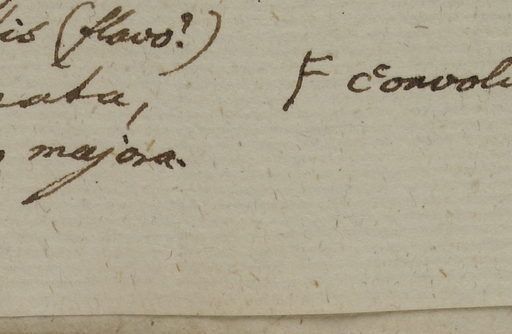 lis (flavo?)
nata,
majora.
F Convolv